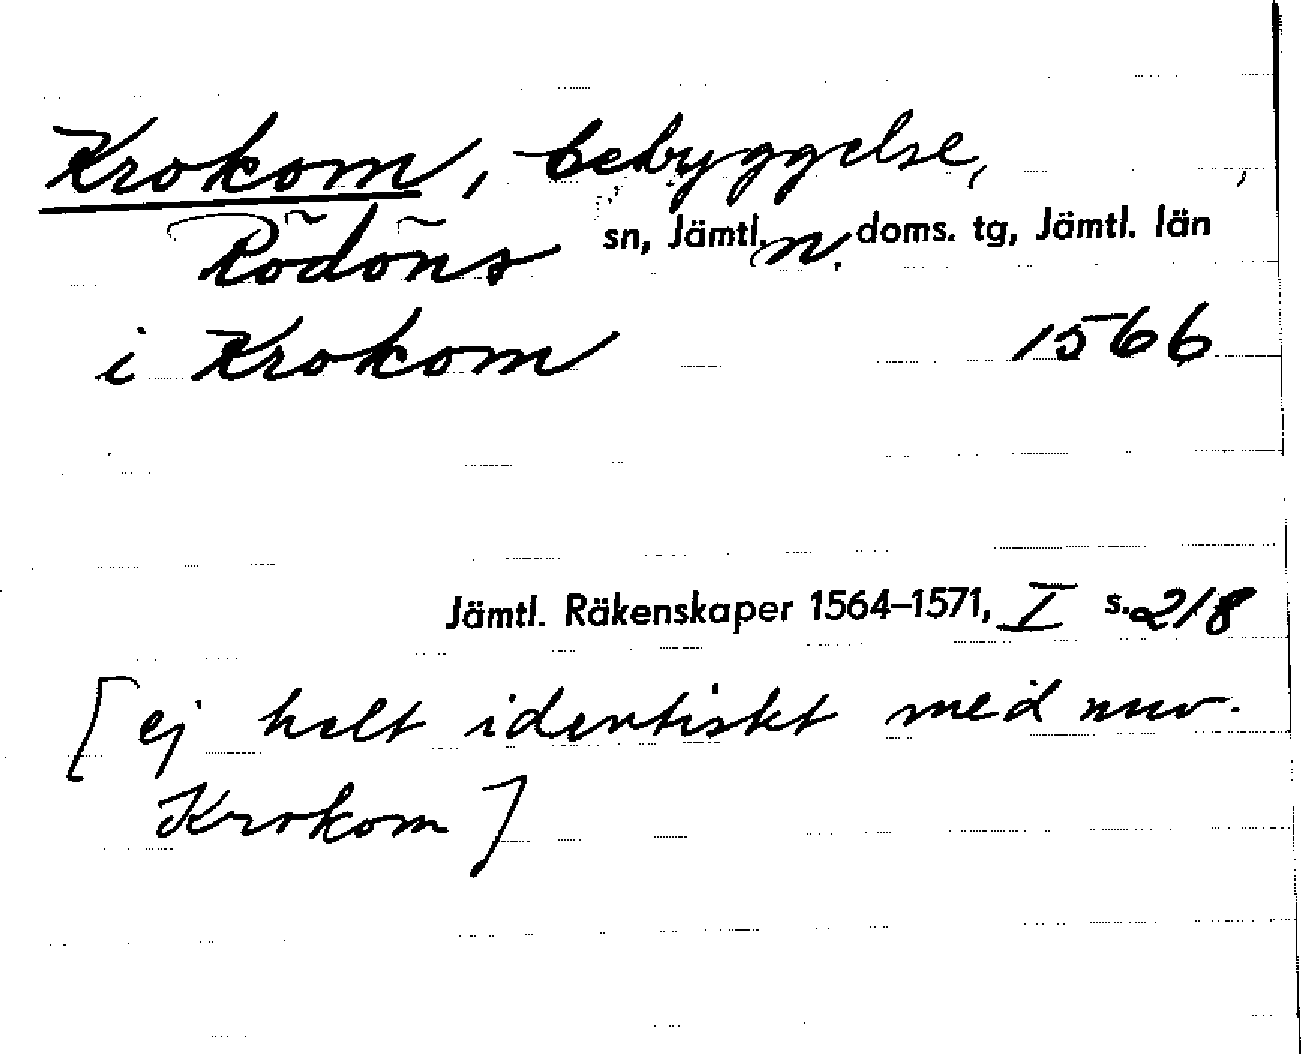 Krokom, bebyggelse,
Rödöns sn, Jämtl. n. doms. tg, Jämtl. län
i Krokom 1566
Jämtl. Räkenskaper 1564–1571, I s. 218
[ej helt identiskt med nuv.
Krokom]